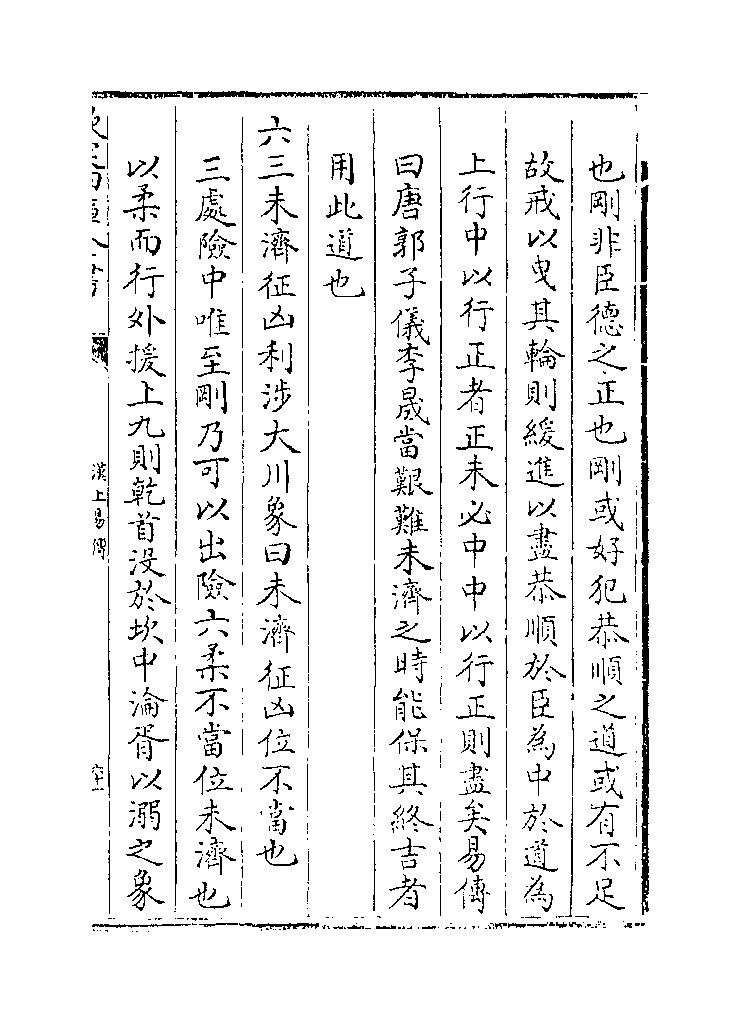 也剛非臣德之正也剛或好犯恭順之道或有不足
故戒以曳其輪則緩進以盡恭順於臣為中於道為
上行中以行正者正未必中中以行正則盡矣易傳
曰唐郭子儀李晟當艱難未濟之時能保其終吉者
用此道也
六三未濟征凶利涉大川象曰未濟征凶位不當也
三處險中唯至剛乃可以出險六柔不當位未濟也
以柔而行外援上九則乾首没於坎中淪胥以溺之象
漢上易傳